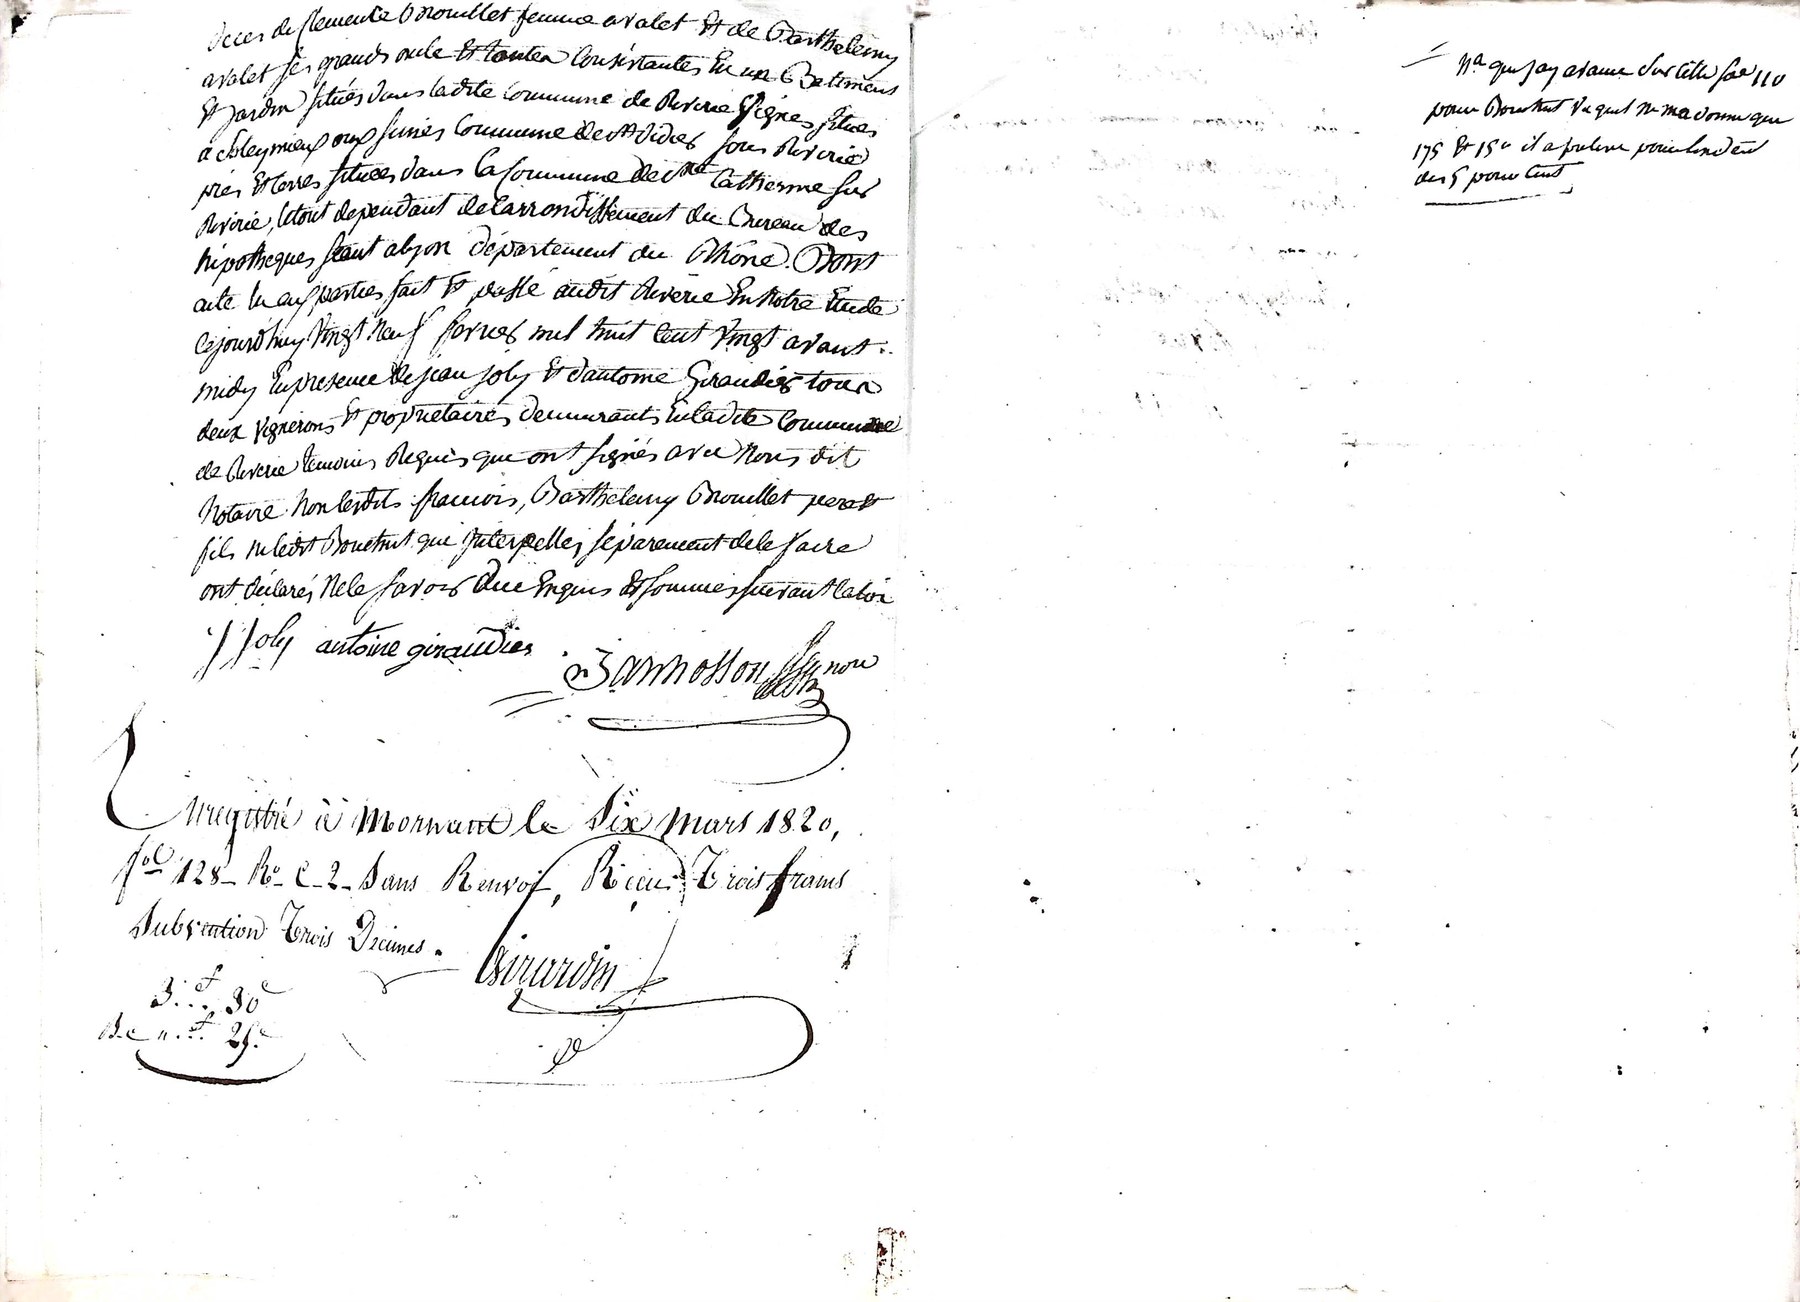 deces de Clemence Brouillet femme avalet Et de Barthelemy
avalet ses grands oncle Et tantes Consistantes En un Batiment
Et Jardin situés dans ladite Commune de Riverie Vignes situées
a Commune de St Didier sous Riverie
prés Et terres situées dans la Commune de Ste Catherine sur
Riverie, le tout dependant de l'arrondissement du Bureau des
hipotheques séant a lyon département du Rhône. Dont
acte lu aux parties fait Et passé audit Riverie En notre Etude
Cejourd'huy Vingt Neuf fevrier mil huit Cent Vingt avant
midy En presence de jean joly Et d'antoine Giraudier tous
deux Vignerons Et proprietaires demeurants En ladite Commune
de Riverie temoins Requis que ont signés avec Nous dit
Notaire Non lesdits francois, Barthelemy Brouillet pere Et
fils ni ledit Bouchut que Interpellés séparement de le faire
ont déclarés Ne le savoir Due Enquis Et sommes suivant la loi
J Joly antoine giraudier
Zannosson
Enregistré à Mornant le Six Mars 1820,
fol 128 Ro C. 2. Sans Renvoi, Reçu Trois francs
Subvention Trois Decimes.
Girardin
3.f 30c
25c
Na que jay avancé Sur Cette Soe 110
pour Bouchut Vu quil ne ma donné que
175 Et 15
des 5 pour Cent